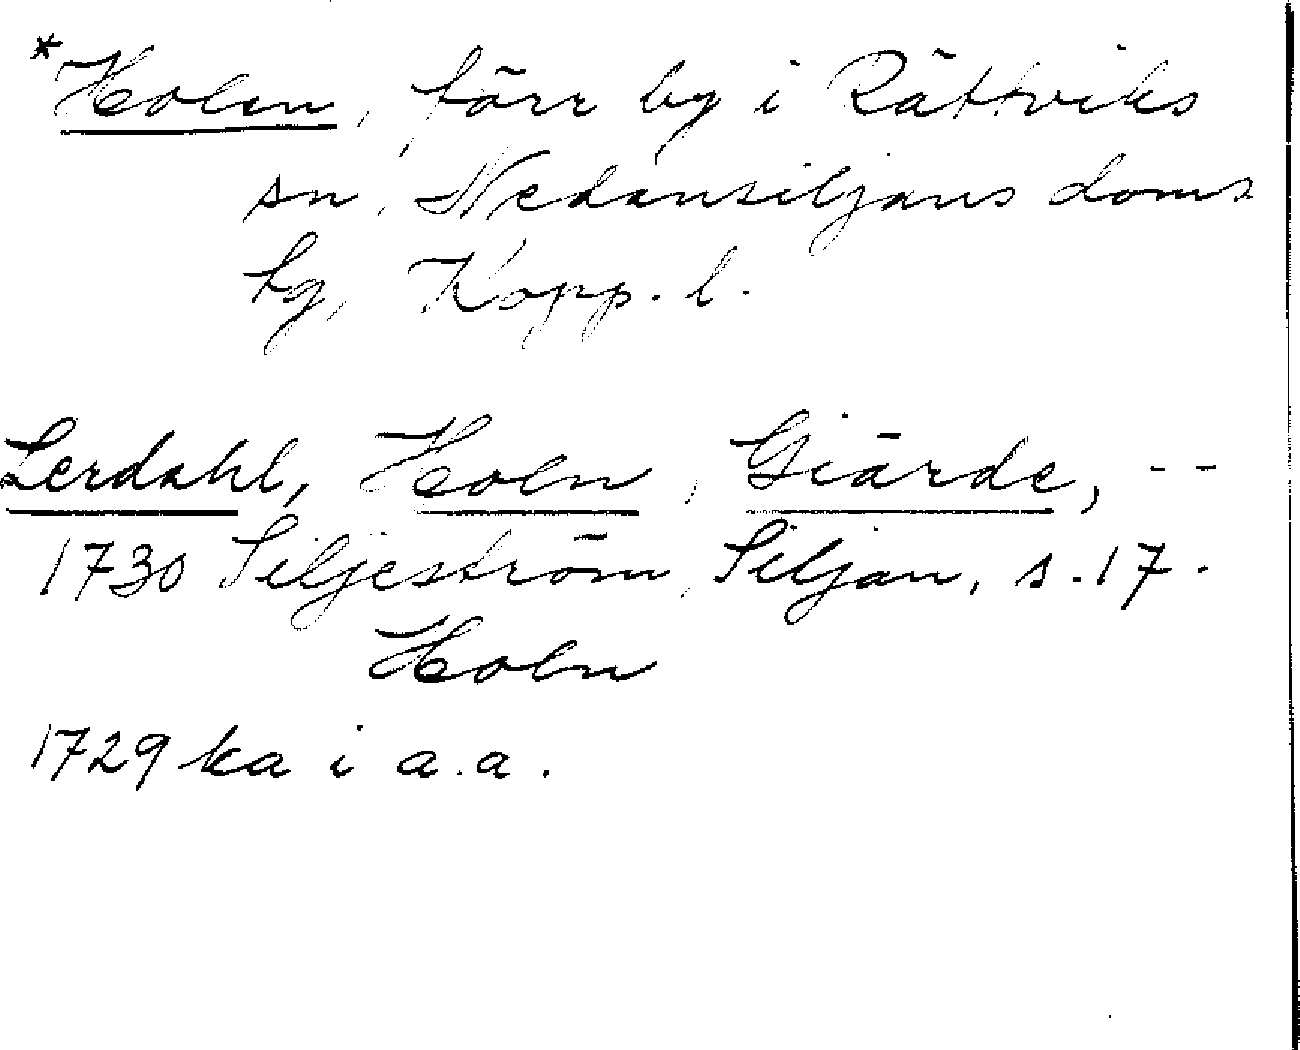 *Holen, förr by i Rättviks
sn, Nedansiljans doms
sg, Kopp. l.
Lerdahl, Holn, Giärde, --
1730 Siljeström, Siljan, s. 17.
Holn
1729 ka i a.a.